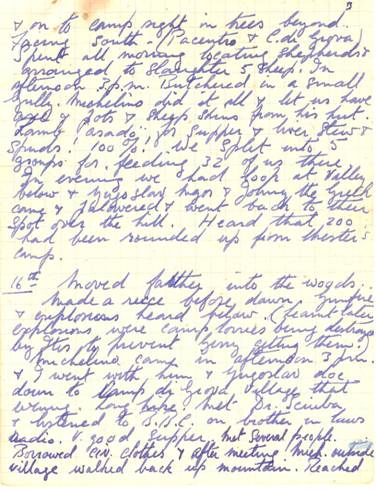 3
& on to camp sight in trees beyond.
Facing South - (Pacentro & C. di Giova)
Spent all morning locating shepherds &
arranged to slaughter 5 sheep. In
afternoon 3 p.m. Butchered in a small
gully. Michelino did it all & let us have
of pots & sheep skins from his hut.
Lamb asado for supper & liver stew &
spuds! 100%! We split into 5
groups for feeding 32 of us there
In evening we had look at Valley
below & Yugoslav major & Johny the Greek
came & & went back to their
spot over the hill. Heard that 200
had been rounded up from
camp.
16th Moved farther into the woods.
Made a recce before dawn gunfire
& explosions heard below. (learnt later
explosions were camp lorries being destroyed
by to prevent Gerry getting them)
Michelino came in afternoon 3 p.m.
& I went with him & Yugoslav doc
down to Campo di Giova village that
evening. Long hike, met Dr.
& listened to B.B.C. on brother in laws
radio. V. good supper, met several people.
Borrowed civ. clothes & after meeting Mich. outside
village walked back up mountain. Reached